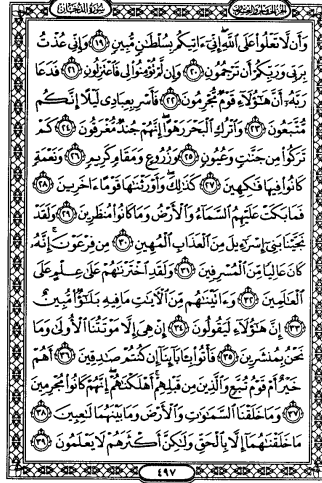 الجزء الخامس والعشرون سورة الدخان
وَأَن لَّا تَعْلُوا۟ عَلَى ٱللَّهِ إِنِّىٓ ءَاتِيكُم بِسُلْطَـٰنٍ مُّبِينٍ ١٩ وَإِنِّى عُذْتُ
بِرَبِّى وَرَبِّكُمْ أَن تَرْجُمُونِ ٢٠ وَإِن لَّمْ تُؤْمِنُوا۟ لِى فَٱعْتَزِلُونِ ٢١ فَدَعَا
رَبَّهُۥٓ أَنَّ هَـٰٓؤُلَآءِ قَوْمٌ مُّجْرِمُونَ ٢٢ فَأَسْرِ بِعِبَادِى لَيْلًا إِنَّكُم
مُّتَّبَعُونَ ٢٣ وَٱتْرُكِ ٱلْبَحْرَ رَهْوًا إِنَّهُمْ جُندٌ مُّغْرَقُونَ ٢٤ كَمْ
تَرَكُوا۟ مِن جَنَّـٰتٍ وَعُيُونٍ ٢٥ وَزُرُوعٍ وَمَقَامٍ كَرِيمٍ ٢٦ وَنَعْمَةٍ
كَانُوا۟ فِيهَا فَـٰكِهِينَ ٢٧ كَذَٰلِكَ وَأَوْرَثْنَـٰهَا قَوْمًا ءَاخَرِينَ ٢٨
فَمَا بَكَتْ عَلَيْهِمُ ٱلسَّمَآءُ وَٱلْأَرْضُ وَمَا كَانُوا۟ مُنظَرِينَ ٢٩ وَلَقَدْ
نَجَّيْنَا بَنِىٓ إِسْرَٰٓءِيلَ مِنَ ٱلْعَذَابِ ٱلْمُهِينِ ٣٠ مِن فِرْعَوْنَ إِنَّهُۥ
كَانَ عَالِيًا مِّنَ ٱلْمُسْرِفِينَ ٣١ وَلَقَدِ ٱخْتَرْنَـٰهُمْ عَلَىٰ عِلْمٍ عَلَى
ٱلْعَـٰلَمِينَ ٣٢ وَءَاتَيْنَـٰهُم مِّنَ ٱلْـَٔايَـٰتِ مَا فِيهِ بَلَـٰٓؤٌا۟ مُّبِينٌ
٣٣ إِنَّ هَـٰٓؤُلَآءِ لَيَقُولُونَ ٣٤ إِنْ هِىَ إِلَّا مَوْتَتُنَا ٱلْأُولَىٰ وَمَا
نَحْنُ بِمُنشَرِينَ ٣٥ فَأْتُوا۟ بِـَٔابَآئِنَآ إِن كُنتُمْ صَـٰدِقِينَ ٣٦ أَهُمْ
خَيْرٌ أَمْ قَوْمُ تُبَّعٍ وَٱلَّذِينَ مِن قَبْلِهِمْ أَهْلَكْنَـٰهُمْ إِنَّهُمْ كَانُوا۟ مُجْرِمِينَ
٣٧ وَمَا خَلَقْنَا ٱلسَّمَـٰوَٰتِ وَٱلْأَرْضَ وَمَا بَيْنَهُمَا لَـٰعِبِينَ ٣٨
مَا خَلَقْنَـٰهُمَآ إِلَّا بِٱلْحَقِّ وَلَـٰكِنَّ أَكْثَرَهُمْ لَا يَعْلَمُونَ ٣٩
٤٩٧